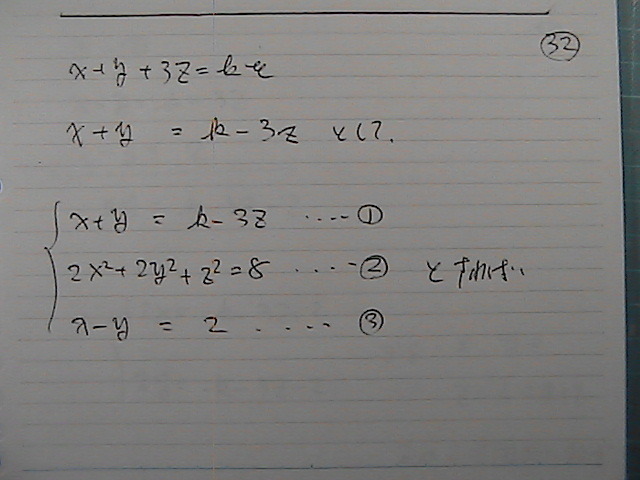 32
x+y+3z=kと
x+y = k-3z として.
x+y = k-3z ····· ①
2x²+2y²+z²=8 ····· ② とすれば..
x-y = 2 ····· ③